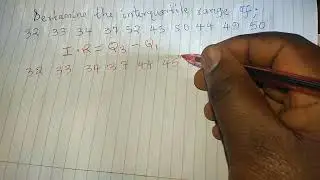 Determine the interquartile range of:
32 33 34 37 52 45 50 44 49 50
I.R = Q3 - Q1
32 33 34 37 44 45